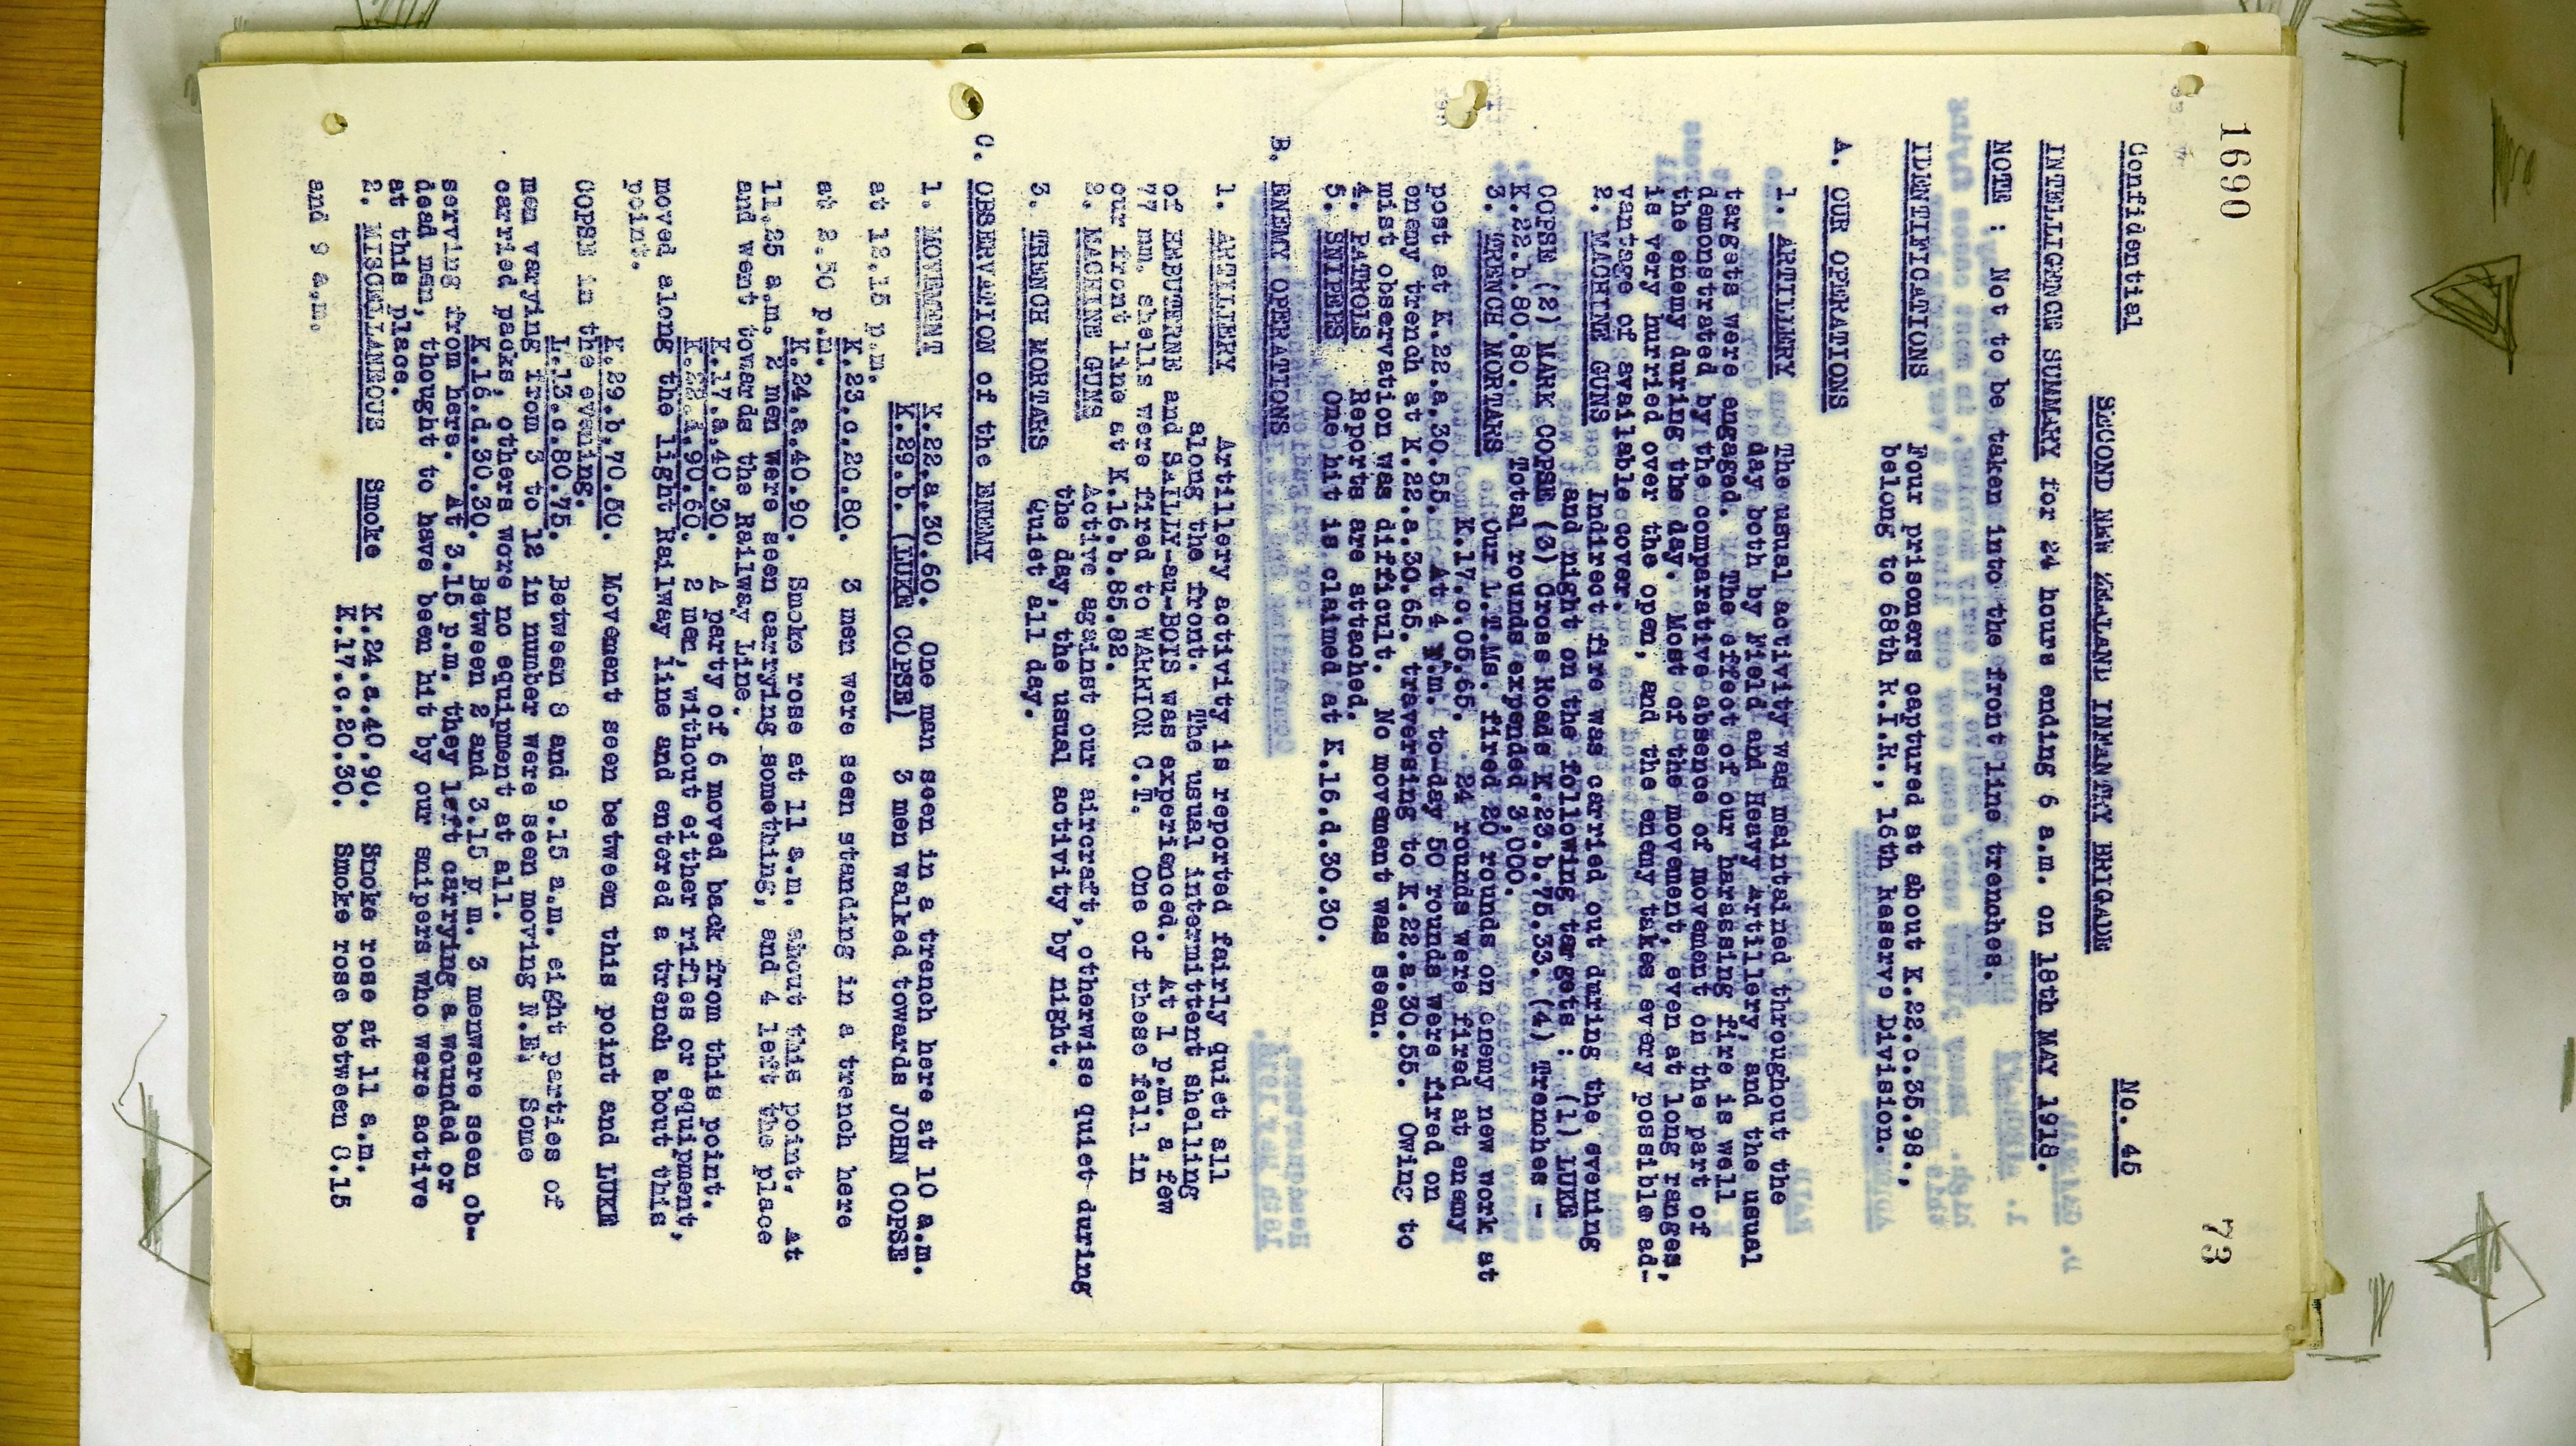 1690
73
Confidential
No. 45
SECOND NEW ZEALAND INFANTRY BRIGADE
INTELLIGENCE SUMMARY for 24 hours ending 6 a.m. on 18th MAY 1918.
NOTE : Not to be taken into the front line trenches.
IDENTIFICATIONS Four prisoners captured at about K.22.c.35.98.,
belong to 68th R.I.R., 16th Reserve Division.
A. OUR OPERATIONS
1. ARTILLERY The usual activity was maintained throughout the
day both by Field and Heavy Artillery, and the usual
targets were engaged. The effect of our harassing fire is well
demonstrated by the comparative absence of movement on the part of
the enemy during the day. Most of the movement, even at long ranges,
is very hurried over the open, and the enemy takes every possible ad-
vantage of available cover.
2. MACHINE GUNS Indirect fire was carried out during the evening
and night on the following targets : (1) LUKE
COPSE (2) MARK COPSE (3) Cross Roads K.23.b.75.33. (4) Trenches -
K.22.b.80.80. Total rounds expended 3,000.
3. TRENCH MORTARS Our L.T.Ms. fired 20 rounds on enemy new work at
K.17.c.05.65. 24 rounds were fired at enemy
post at K.22.a.30.55. At 4 p.m. to-day 50 rounds were fired on
enemy trench at K.22.a.30.65. traversing to K.22.a.30.55. Owing to
mist observation was difficult. No movement was seen.
4. PATROLS Reports are attached.
5. SNIPERS One hit is claimed at K.16.d.30.30.
B. ENEMY OPERATIONS
1. ARTILLERY Artillery activity is reported fairly quiet all
along the front. The usual intermittent shelling
of HEBUTERNE and SAILLY-au-BOIS was experienced. At 1 p.m. a few
77 mm. shells were fired to WARRIOR C.T. One of these fell in
our front line at K.16.b.85.82.
2. MACHINE GUNS Active against our aircraft, otherwise quiet during
the day, the usual activity by night.
3. TRENCH MORTARS Quiet all day.
C. OBSERVATION of the ENEMY
1. MOVEMENT K.22.a.30.60. One man seen in a trench here at 10 a.m.
K.29.b. (LUKE COPSE) 3 men walked towards JOHN COPSE
at 12.15 p.m.
K.23.c.20.80. 3 men were seen standing in a trench here
at 2.50 p.m.
K.24.a.40.90. Smoke rose at 11 a.m. about this point. At
11.25 a.m. 2 men were seen carrying something, and 4 left the place
and went towards the Railway Line.
K.17.a.40.30. A party of 6 moved back from this point.
2 men, without either rifles or equipment,
moved along the light Railway line and entered a trench about this
point.
K.29.b.70.50. Movement seen between this point and LUKE
COPSE in the evening.
L.13.c.80.75. Between 8 and 9.15 a.m. eight parties of
men varying from 3 to 12 in number were seen moving N.E. Some
carried packs, others wore no equipment at all.
K.16.d.30.30. Between 2 and 3.15 p.m. 3 menwere seen ob-
serving from here. At 3.15 p.m. they left carrying a wounded or
dead man, thought to have been hit by our snipers who were active
at this place.
2. MISCELLANEOUS Smoke K.24.a.40.90. Smoke rose at 11 a.m.
K.17.c.20.30. Smoke rose between 8.15
and 9 a.m.